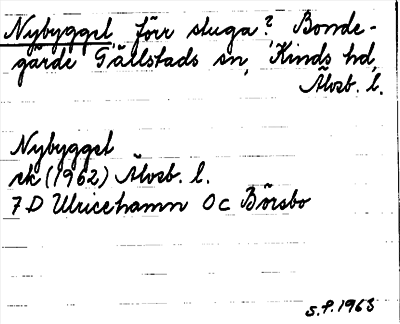 Nybygget förr stuga? Bonde-
gärde Gällstads sn, Kinds hd,
Älvsb. l.
Nybygget
rk (1962) Älvsb. l.
7D Ulricehamn 0c Börsbo
S.P. 1963